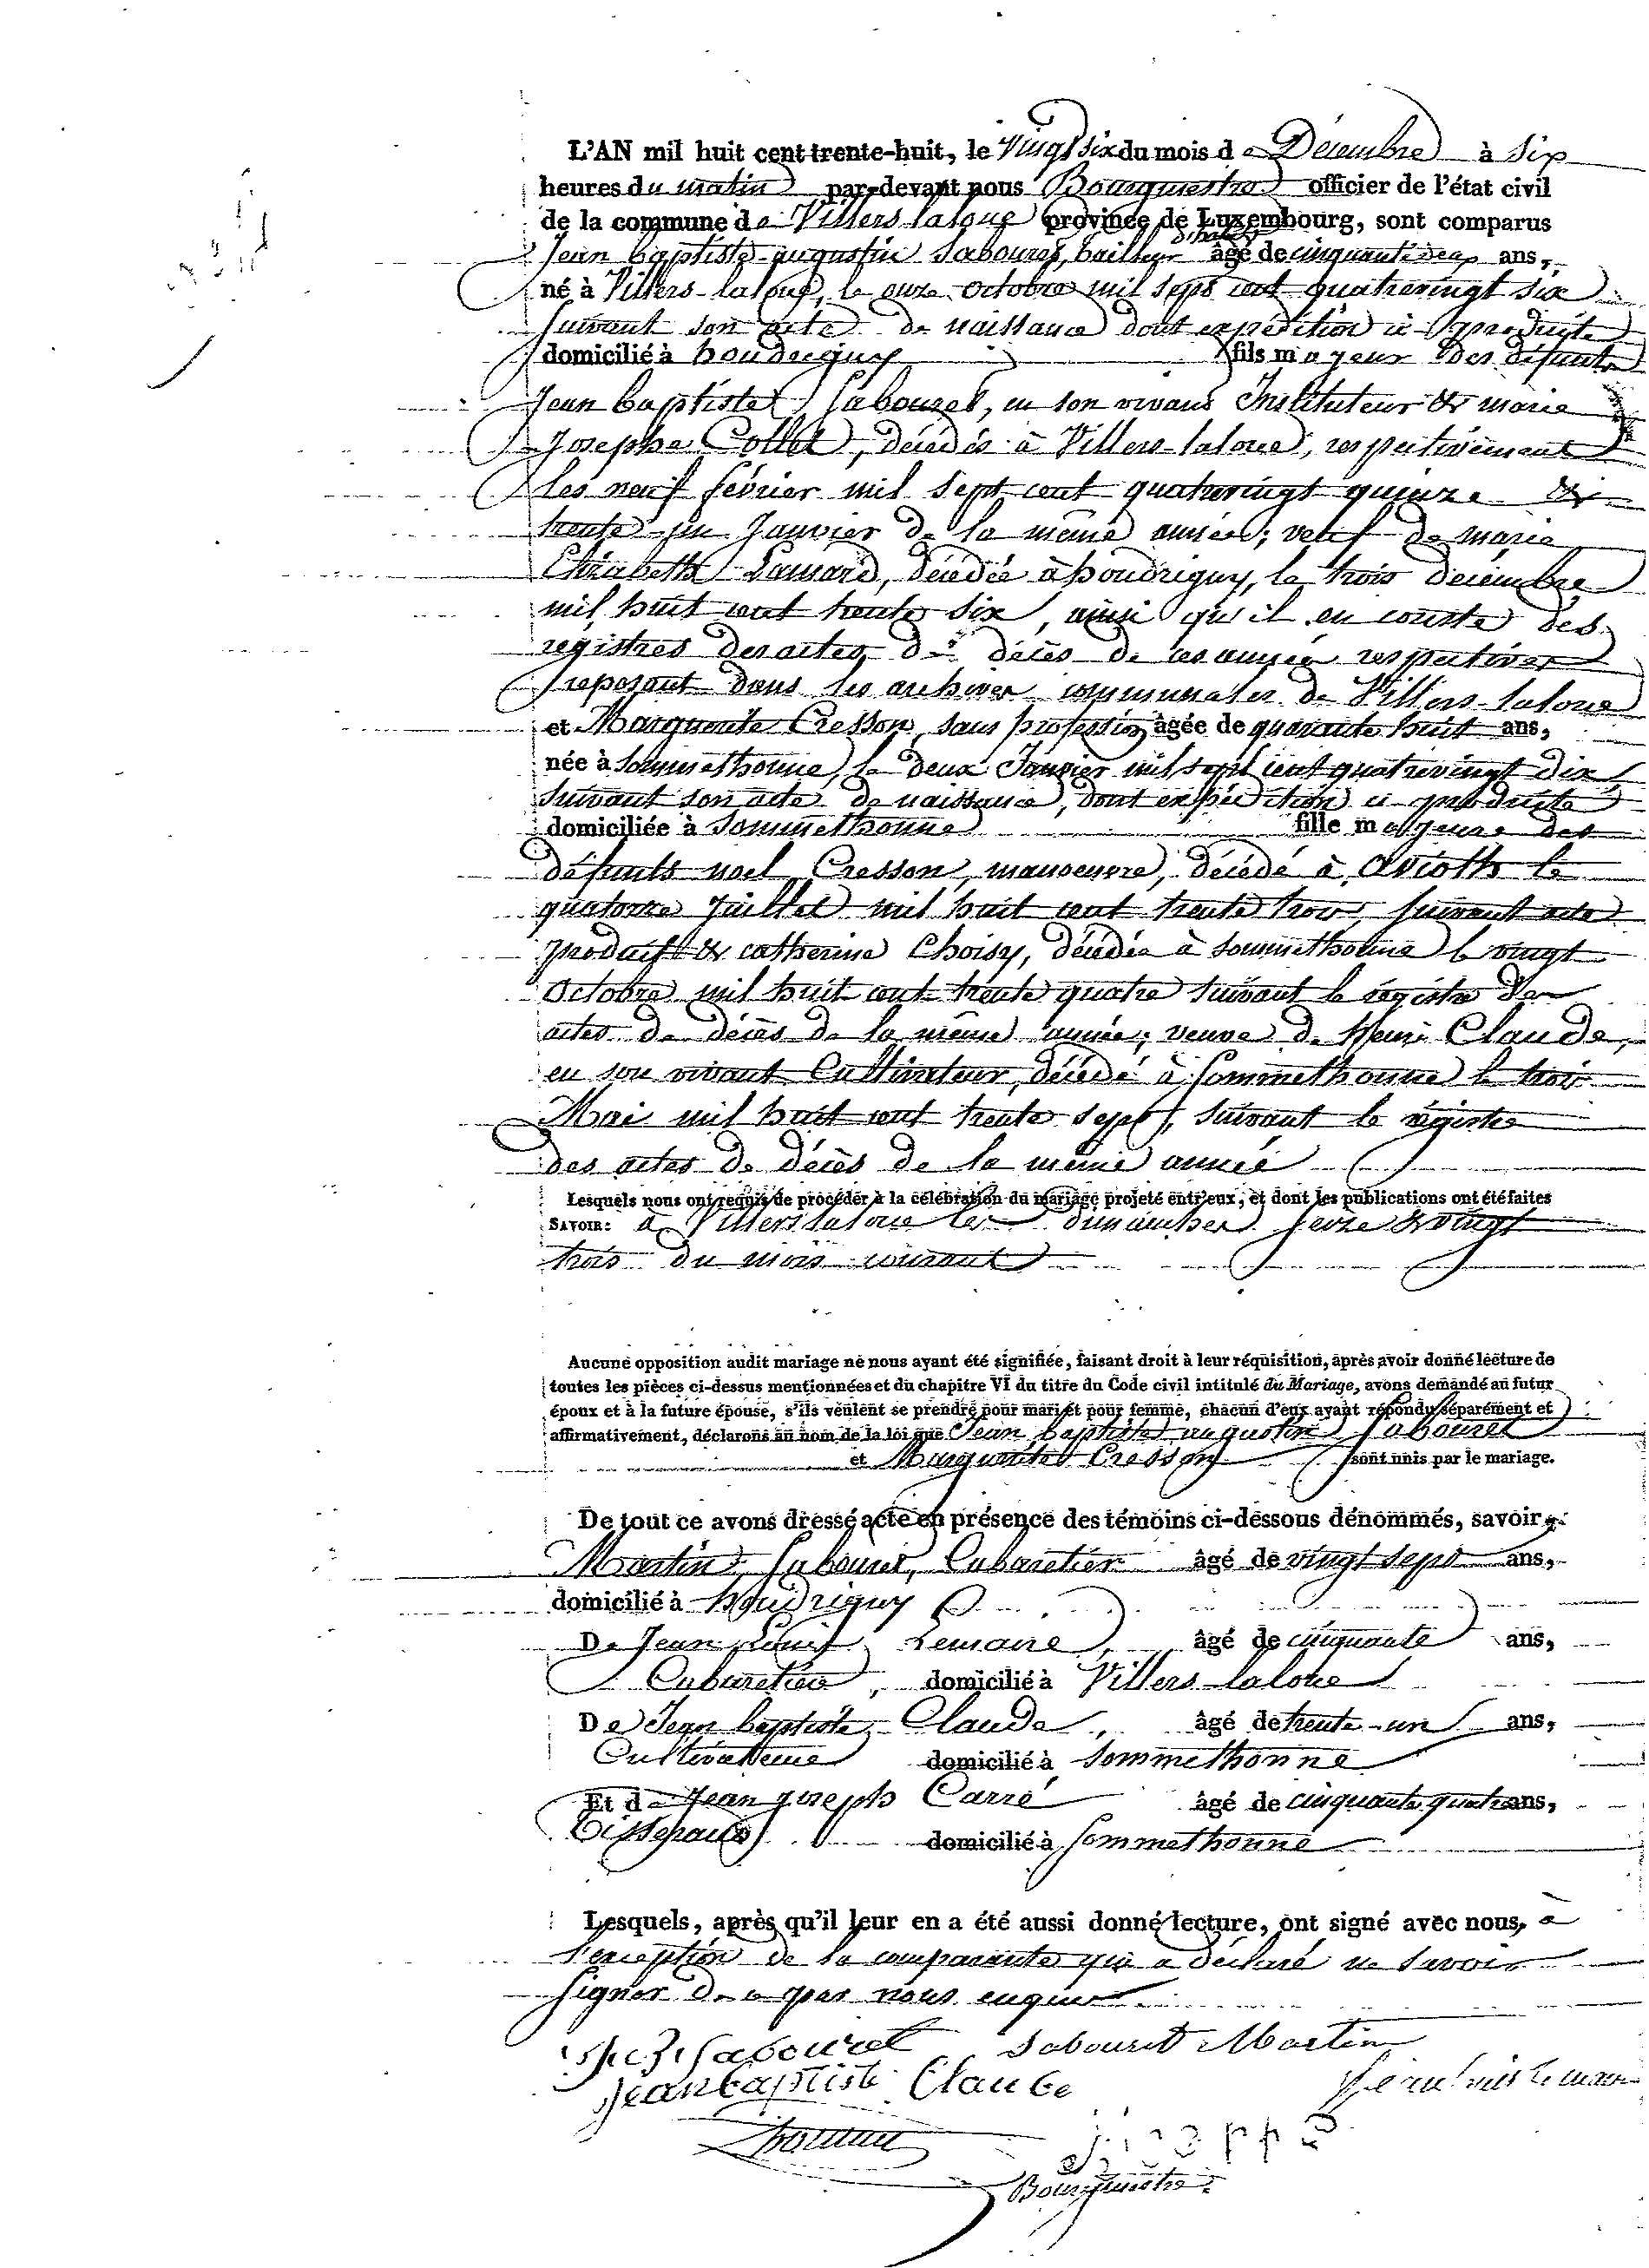 L'AN mil huit cent trente-huit, le Vingt six du mois de Décembre à Six
heures du matin par-devant nous Bourguestre officier de l'état civil
de la commune de Villers laloue province de Luxembourg, sont comparus
Jean baptiste augustin Sabouret, bailleur âgé de cinquante deux ans,
né à Villers-laloue, le onze octobre mil sept cent quatrevingt six
suivant son acte de naissance dont expédition ci produite
domicilié à houdrigny fils majeur des défunts
Jean baptiste Sabouret, en son vivant Instituteur & marie
Josephe Collet, décédés à Villers-laloue, respectivement
les neuf février mil sept cent quatrevingt quinze &
trente-un Janvier de la même année; veuf de marie
Elizabeth Lamard, décédée à houdrigny, le trois décembre
mil huit cent trente six, ainsi qu'il en conste des
registres des actes de décès de ces années respectives
reposant dans les archives communales de Villers-laloue
et Marguerite Cresson, sans profession âgée de quarante huit ans,
née à Sommethonne, le deux Janvier mil sept cent quatrevingt dix
suivant son acte de naissance, dont expédition ci produite
domiciliée à Sommethonne fille majeure des
défunts noel Cresson, manoeuvre, décédé à avioth le
quatorze Juillet mil huit cent trente trois, suivant acte
produit & catherine Choisy, décédée à sommethonne le vingt
octobre mil huit cent trente quatre suivant le registre des
actes de décès de la même année; veuve de Henri Claude,
en son vivant Cultivateur, décédé à Sommethonne le trois
Mai mil huit cent trente sept, suivant le régistre
des actes de décès de la même année
Lesquels nous ont requis de procéder à la célébration du mariage projeté entr'eux, et dont les publications ont été faites
SAVOIR: à Villers laloue les dimanches seize & vingt
trois du mois courant
Aucune opposition audit mariage ne nous ayant été signifiée, faisant droit à leur réquisition, après avoir donné lecture de
toutes les pièces ci-dessus mentionnées et du chapitre VI du titre du Code civil intitulé du Mariage, avons demandé au futur
époux et à la future épouse, s'ils veulent se prendre pour mari et pour femme, chacun d'eux ayant répondu séparément et
affirmativement, déclarons au nom de la loi que Jean baptiste augustin Sabouret
et Marguerite Cresson sont unis par le mariage.
De tout ce avons dressé acte en présence des témoins ci-dessous dénommés, savoir
Martin Sabouret, Cabaretier âgé de vingt sept ans,
domicilié à houdrigny
De Jean Louis Lemaire, âgé de cinquante ans,
Cabaretier, domicilié à Villers-laloue
De Jean baptiste Claude, âgé de trente-un ans,
Cultivateur domicilié à Sommethonne
Et de Jean joseph Carré âgé de cinquante quatre ans,
Tisserand domicilié à Sommethonne
Lesquels, après qu'il leur en a été aussi donné lecture, ont signé avec nous, à
l'exception de la comparante qui a déclaré ne savoir
signer de ce par nous enquise
Sabouret Sabouret Martin
Jean baptiste Claude
Bourguestre